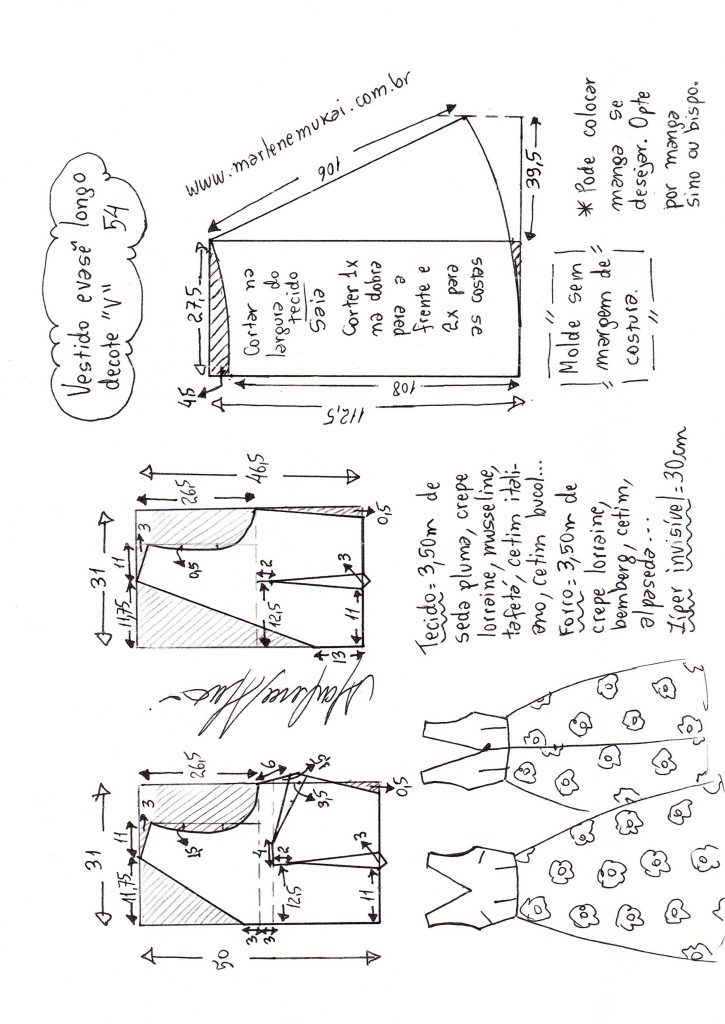 Vestido evasê longo
decote "V" 54
www.marlenemukai.com.br
27,5
106
39,5
4,5
108
112,5
Cortar na
largura do
tecido
Saia
Corter 1x
na dobra
para a
frente e
2x para
as costas
Molde sem
margem de
costura.
* Pode colocar
manga se
desejar. Opte
por manga
sino ou bispo.
31
11,75
11
3
26,5
46,5
0,5
12,5
2
3
11
13
0,5
31
11,75
11
3
26,5
50
1,5
6
3,5
4
2
12,5
3
3
3
11
0,5
Tecido = 3,50m de
seda pluma, crepe
lorraine, musseline,
tafetá, cetim itali-
ano, cetim bucol...
Forro = 3,50m de
crepe lorraine,
bemberg, cetim,
alpaseda...
Zíper invisível = 30cm